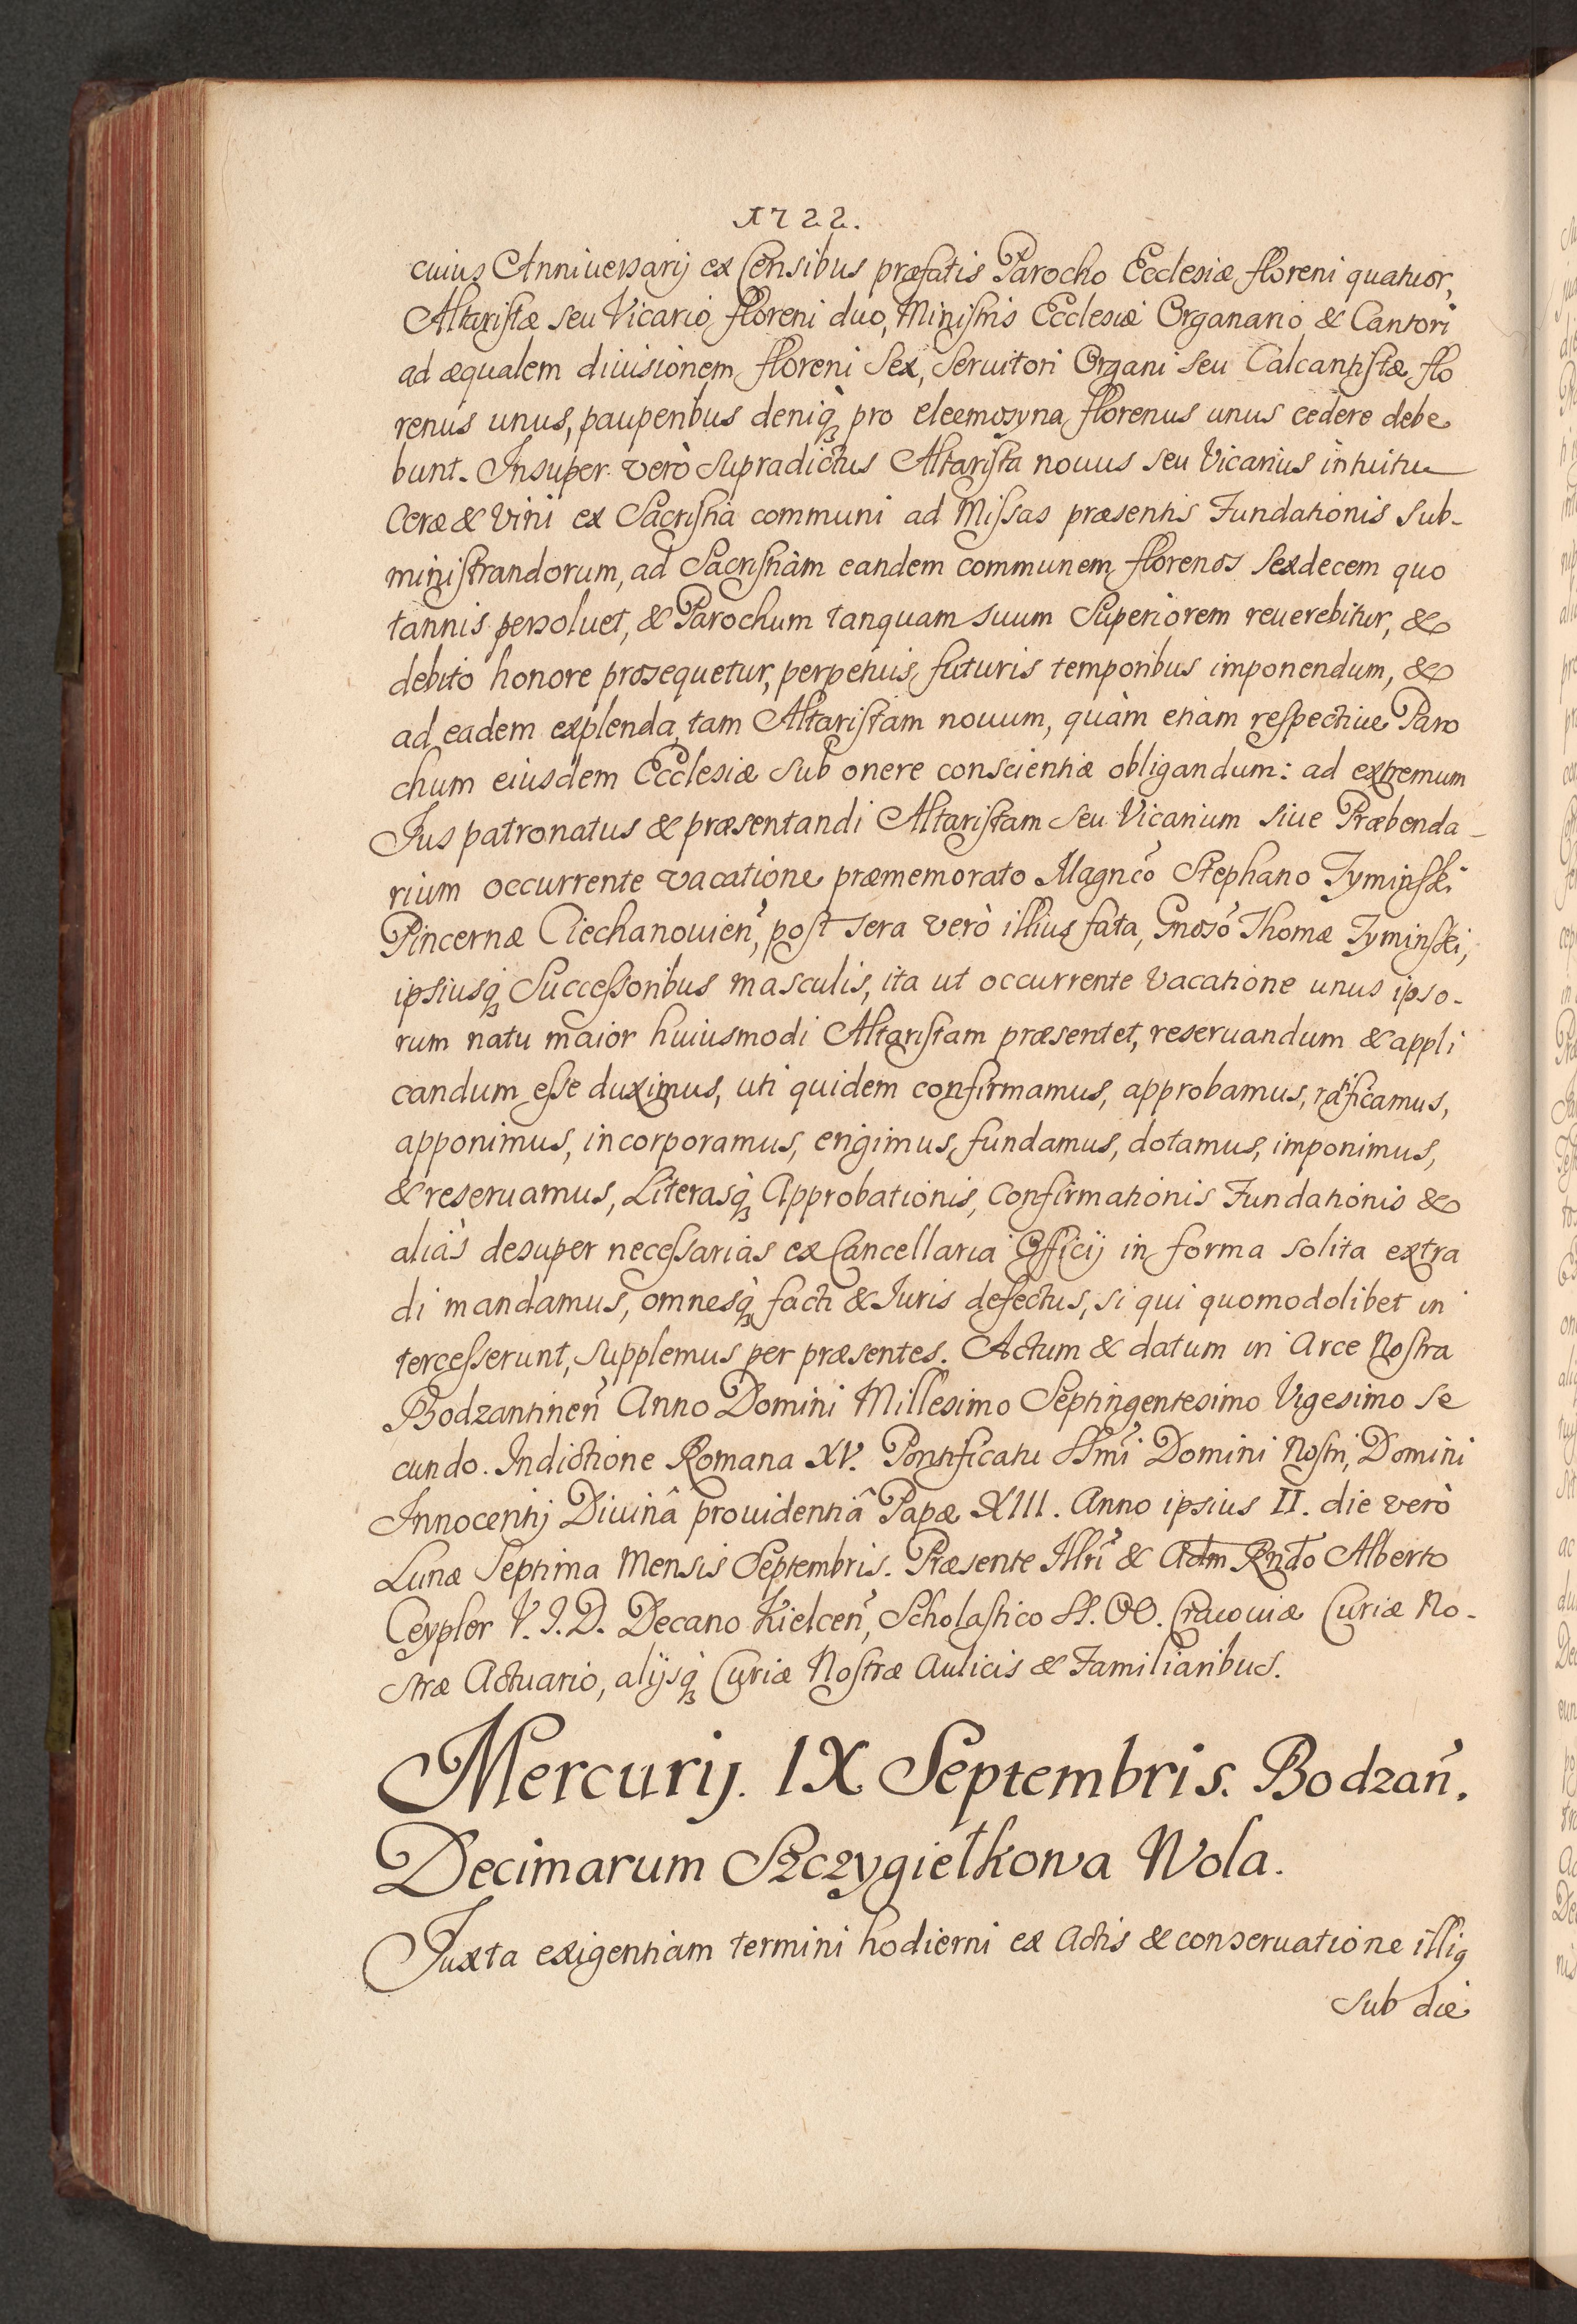 1722.
cuius Anniuersarij ex Censibus præfatis Parocho Ecclesiæ floreni quatuor,
Altaristæ seu Vicario floreni duo, Ministris Ecclesiæ Organario & Cantori
ad æqualem diuisionem floreni sex, seruitori Organi seu Calcantistæ flo
renus unus, pauperibus deniq3 pro eleemosyna florenus unus cedere debe
bunt. Insuper verò supradictus Altarista nouus seu Vicarius intuitu
Ceræ & Vini ex Sacristia communi ad Missas præsentis Fundationis sub-
ministrandorum, ad Sacristiam eandem communem florenos sexdecem quo
tannis persoluet, & Parochum tanquam suum Superiorem reuerebitur, &
debito honore prosequetur, perpetuis futuris temporibus imponendum, &
ad eadem explenda tam Altaristam nouum, quàm etiam respectiue Paro
chum eiusdem Ecclesiæ sub onere conscientiæ obligandum: ad extremum
Jus patronatus & præsentandi Altaristam seu Vicarium siue Præbenda-
rium occurrente vacatione præmemorato Magnco Stephano Tyminski
Pincernæ Ciechanouien, post sera verò illius fata, Gnoso Thomæ Tyminski,
ipsiusq3 Successoribus masculis, ita ut occurrente vacatione unus ipso-
rum natu maior huiusmodi Altaristam præsentet, reseruandum & appli
candum esse duximus, uti quidem confirmamus, approbamus, ratificamus,
apponimus, incorporamus, erigimus, fundamus, dotamus, imponimus,
& reseruamus, Literasq3 Approbationis, Confirmationis Fundationis &
aliàs desuper necessarias ex Cancellaria Officij in forma solita extra
di mandamus, omnesq3 facti & Iuris defectus, si qui quomodolibet in
tercesserunt, supplemus per præsentes. Actum & datum in Arce Nostra
Bodzantinen Anno Domini Millesimo Septingentesimo Vigesimo Se
cundo. Indictione Romana XV. Pontificatu SSmi Domini Nostri, Domini
Innocentij Diuinâ prouidentiâ Papæ XIII. Anno ipsius II. die verò
Lunæ Septima Mensis Septembris. Præsente Illri & Adm Rndo Alberto
Ceypler V. J. D. Decano Kielcen, Scholastico SS. OO. Cracouiæ Curiæ No-
stræ Actuario, alijsq3 Curiæ Nostræ Aulicis & Familiaribus.
Mercurij. IX Septembris. Bodzan.
Decimarum Szczygiełkowa Wola.
Juxta exigentiam termini hodierni ex Actis & conseruatione illiq
sub die